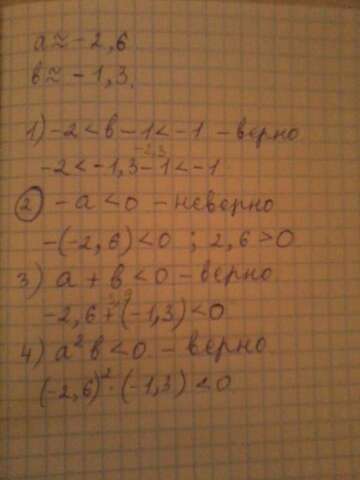 a ≈ -2,6
в ≈ -1,3.
1) -2 < в - 1 < -1 - верно
-2,3
-2 < -1,3 - 1 < -1
2) - a < 0 - неверно
-(-2,6) < 0 ; 2,6 > 0
3) a + в < 0 - верно
-2,6 + (-1,3) < 0
4) a² в < 0 - верно
(-2,6)² · (-1,3) < 0